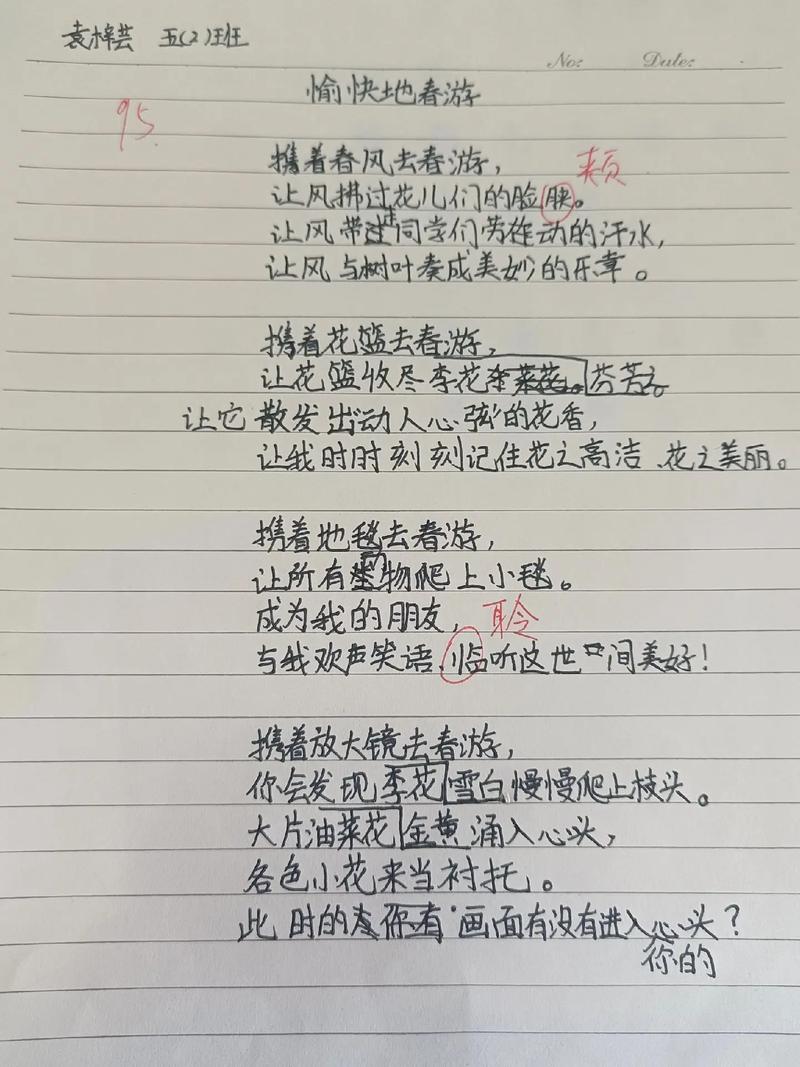 袁梓芸 五(2)班
No: Date:
愉快地春游
95
携着春风去春游,
颊
让风拂过花儿们的脸胦。
让风带走同学们劳作动的汗水,
让风与树叶奏成美妙的乐章。
携着花篮去春游,
让花篮收尽李花芬芳。
让它散发出动人心弦的花香,
让我时时刻刻记住花之高洁、花之美丽。
携着地毯去春游,
让所有动物爬上小毯。
成为我的朋友,
聆
与我欢声笑语、临听这世间美好!
携着放大镜去春游,
你会发现李花雪白慢慢爬上枝头。
大片油菜花金黄涌入心头,
各色小花来当衬托。
此时的画面有没有进入心头?
你的